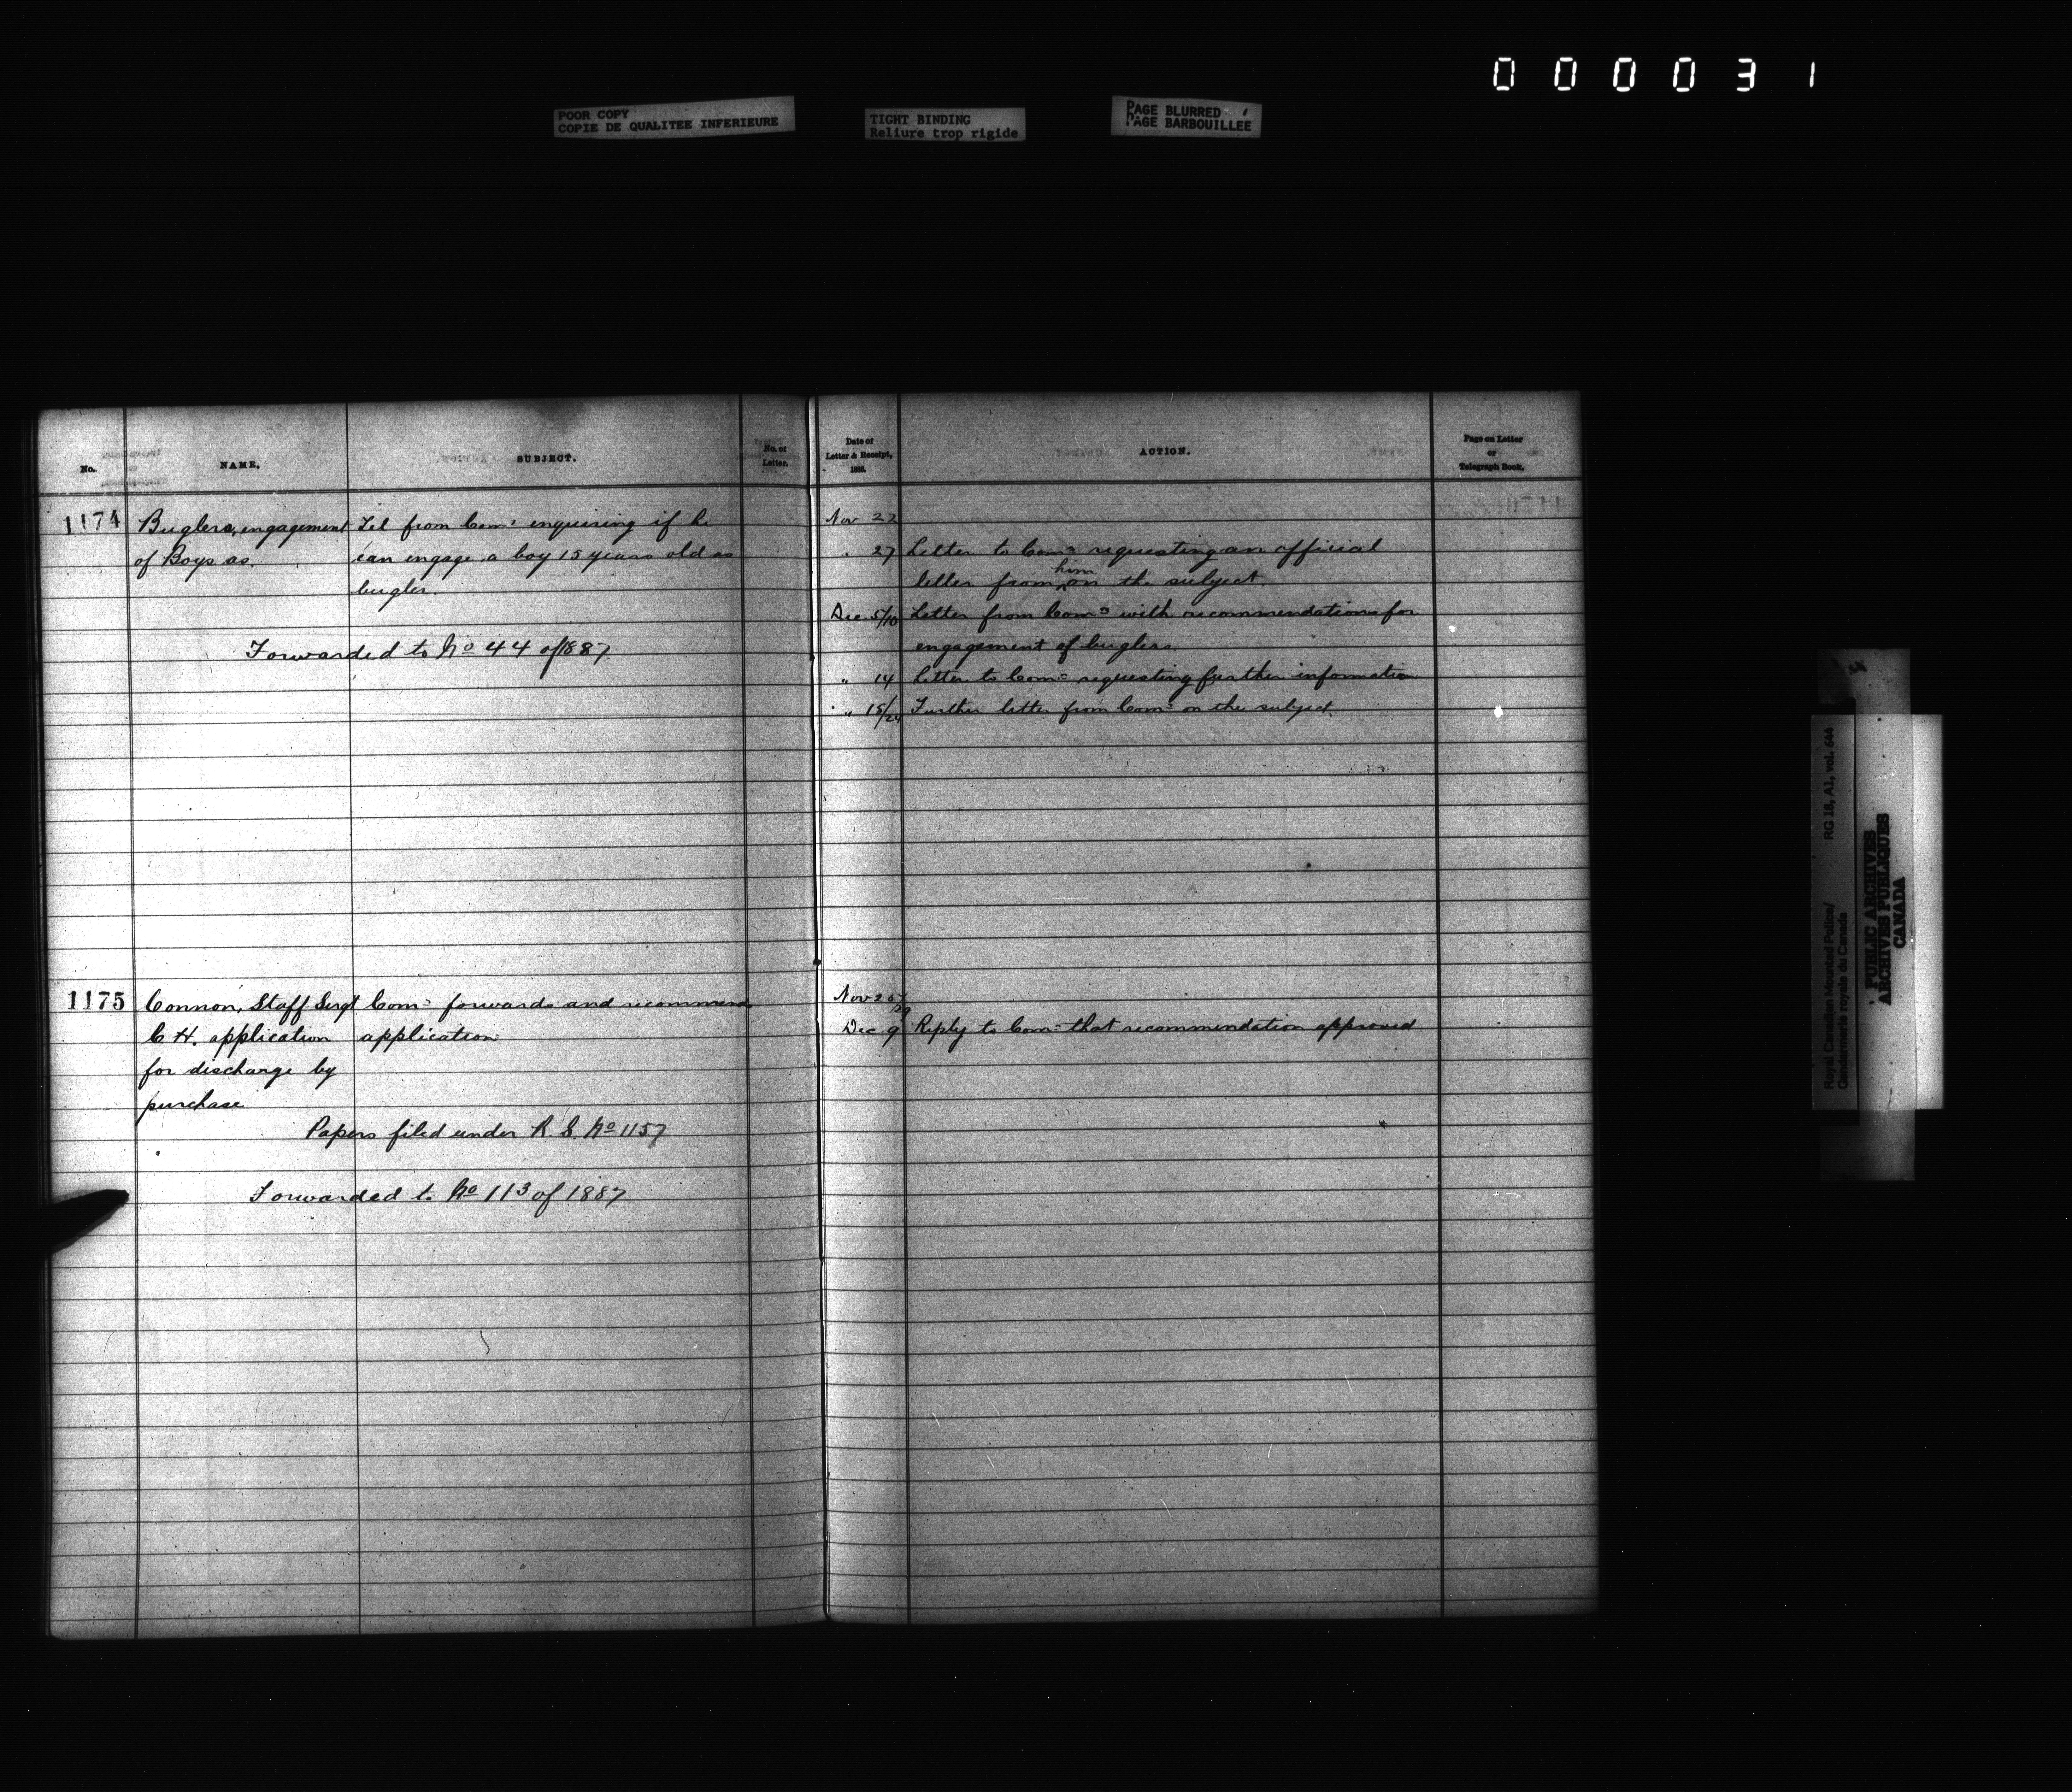 000031
POOR COPY
COPIE DE QUALITEE INFERIEURE
TIGHT BINDING
Reliure trop rigide
PAGE BLURRED
PAGE BARBOUILLEE
No.
NAME.
SUBJECT.
No. of
Letter.
Date of
Letter & Receipt,
188
ACTION.
Page on Letter
or
Telegraph Book.
1174
Buglers, engagement
of Boys as.
Tel from Comr enquiring if he
can engage a boy 15 years old as
bugler.
Forwarded to No 44 of 1887
Nov 22
" 27 Letter to Comr requesting an official
letter from him on the subject.
Dec 5/10 Letter from Comr with recommendations for
engagement of buglers.
" 14 Letter to Comr requesting further information
" 15/24 Further letter from Comr on the subject.
1175
Connon, Staff Sergt
C H. application
for discharge by
purchase
Comr forwards and recommends
application
Papers filed under R. S. No 1157
Forwarded to No 113 of 1887
Nov 20/29
Dec 9 Reply to Comr that recommendation approved
Royal Canadian Mounted Police/
Gendarmerie royale du Canada
RG 18, A1, vol. 644
PUBLIC ARCHIVES
ARCHIVES PUBLIQUES
CANADA